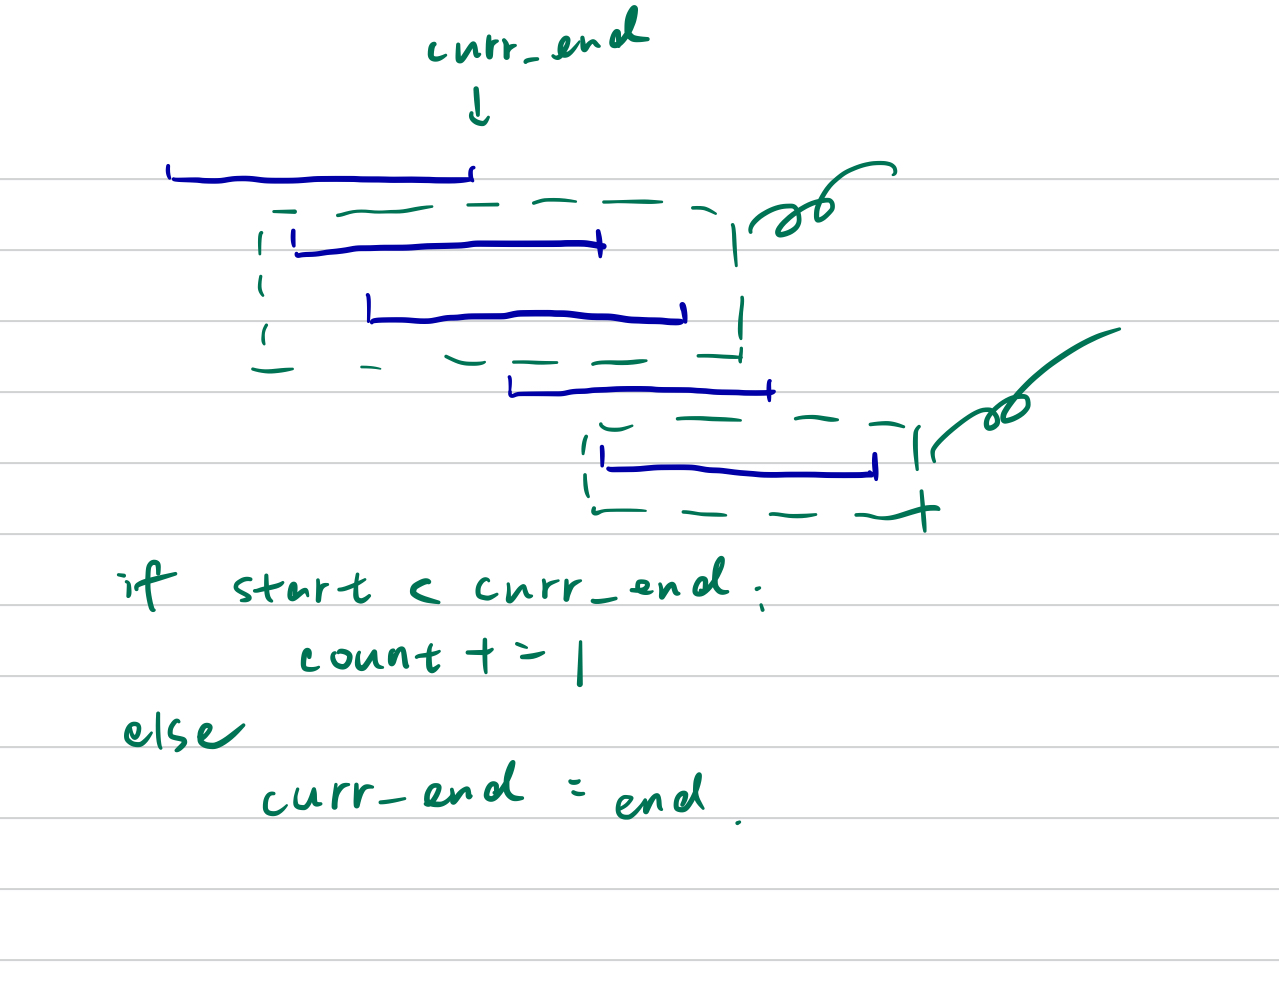 curr_end
if start < curr_end:
count += 1
else
curr_end = end.